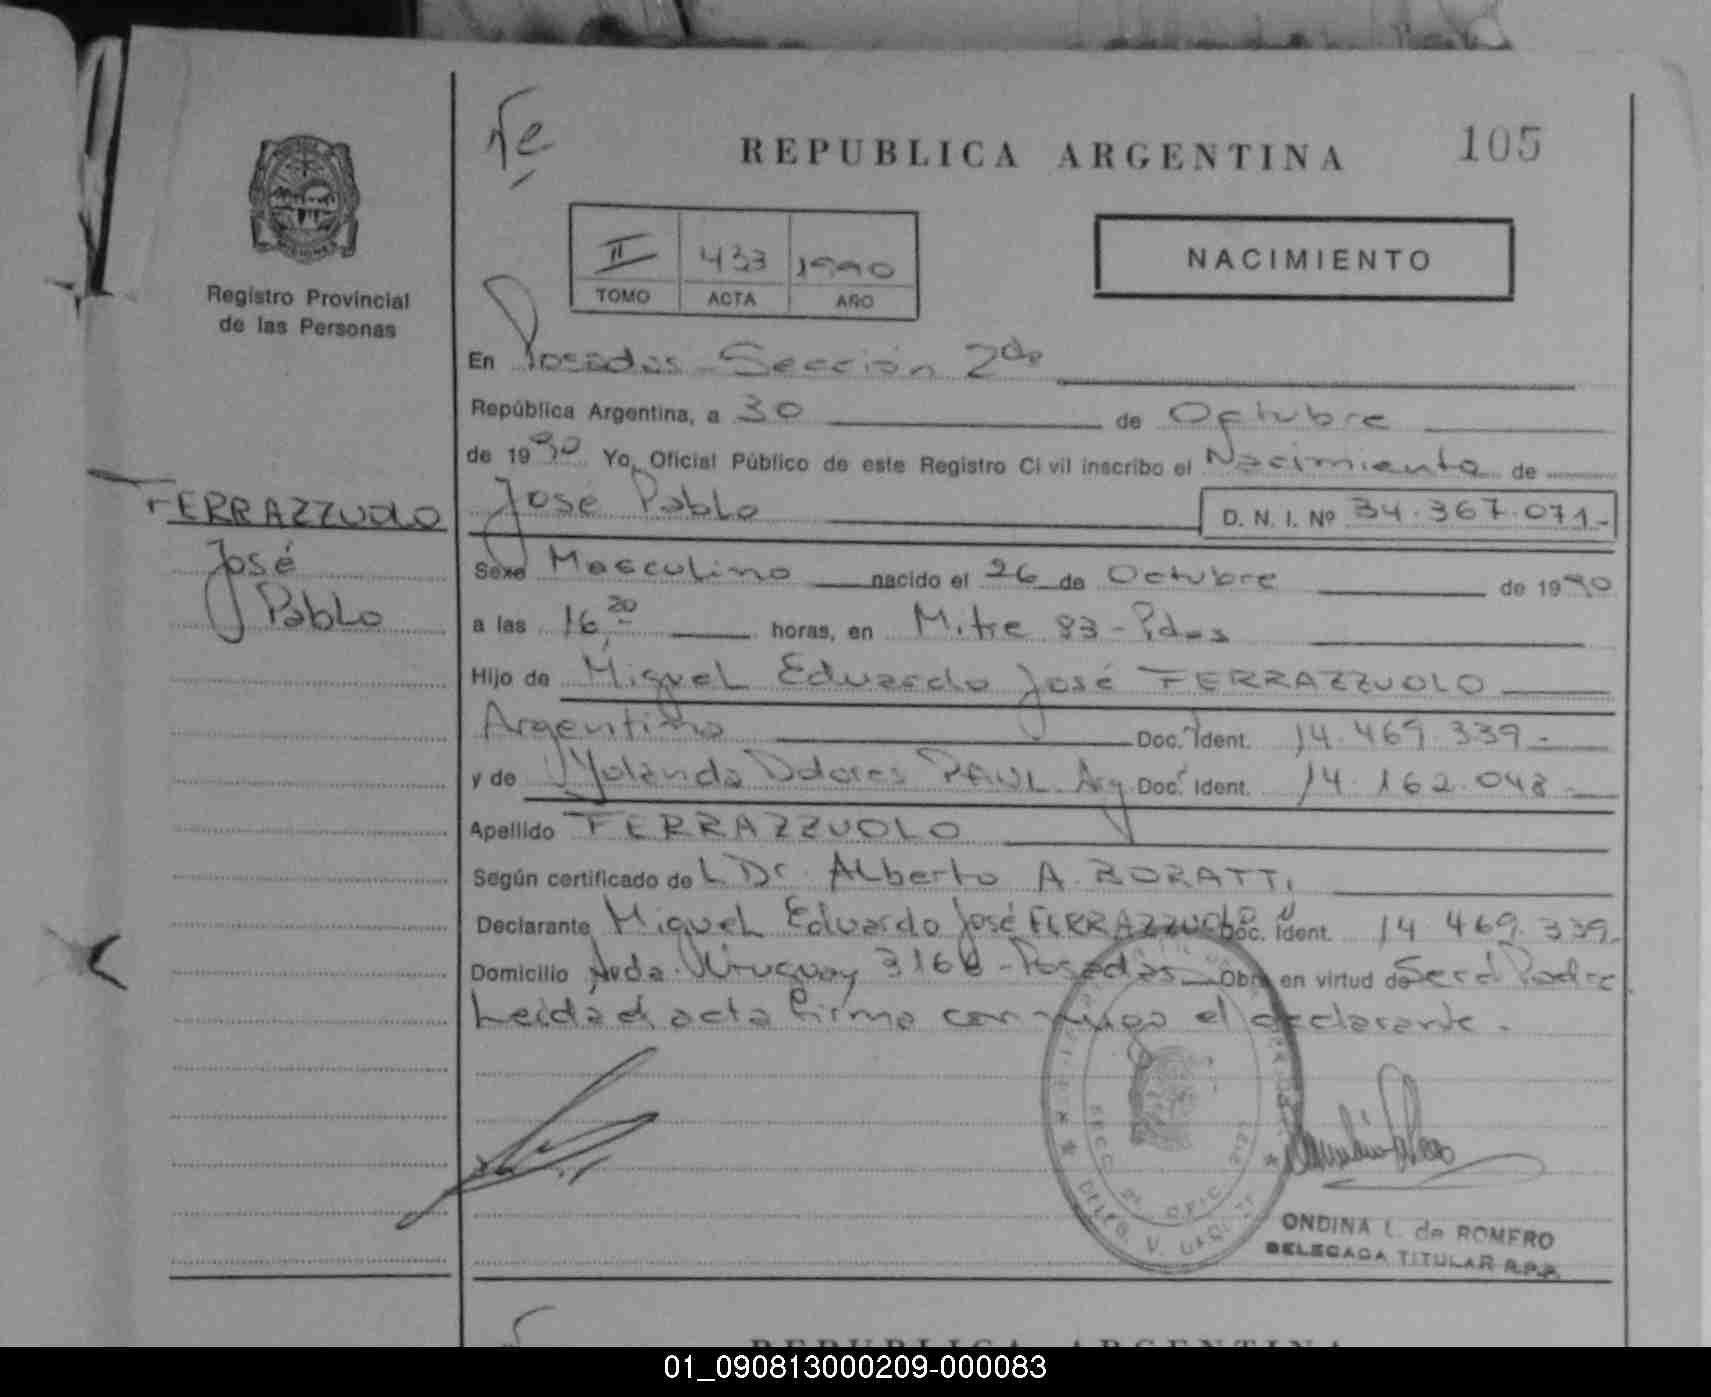 REPUBLICA ARGENTINA
105
II 433 1990
TOMO ACTA AÑO
NACIMIENTO
Registro Provincial
de las Personas
En Posadas - Sección 2da
República Argentina, a 30 de Octubre
de 1990 Yo, Oficial Público de este Registro Civil inscribo el Nacimiento de
FERRAZZUOLO
José
Pablo
José Pablo D. N. I. Nº 34.367.071.-
Sexo Masculino nacido el 26 de Octubre de 1990
a las 16,20 horas, en Mitre 93 - Pdas
Hijo de Miguel Eduardo José FERRAZZUOLO
Argentino Doc. Ident. 14.469.339.-
y de Yolanda Dolores PAUL. Arg Doc. Ident. 14.162.048.-
Apellido FERRAZZUOLO
Según certificado del Dr. Alberto A. BORATTI
Declarante Miguel Eduardo José FERRAZZUOLO Doc. Ident. 14.469.339.
Domicilio Avda. Uruguay 3168 - Posadas Obra en virtud de Ser el Padre
Leída el acta firma conmigo el declarante.
ONDINA L. de ROMERO
DELEGADA TITULAR R.P.P.
REPUBLICA ARGENTINA
01_090813000209-000083